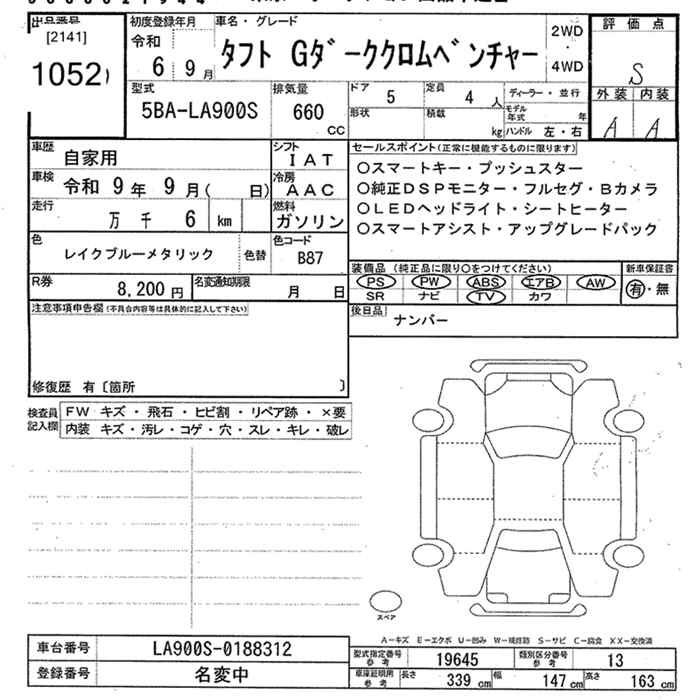 出品番号
[2141]
1052
初度登録年月
令和
6 9 月
車名・グレード
タフト Gダーククロムベンチャー
2WD
・
4WD
評価点
S
外装 内装
A A
型式
5BA-LA900S
排気量
660
CC
ドア 5
定員 4 人
形状
積載 kg
ディーラー・並行
モデル年式 年
ハンドル 左・右
車歴 自家用
シフト IAT
車検 令和 9年 9月( 日)
冷房 AAC
走行 万 千 6 km
燃料 ガソリン
色 レイクブルーメタリック 色替
色コード B87
R券 8,200 円
名変通知期限 月 日
セールスポイント(正常に機能するものに限ります)
○スマートキー・プッシュスター
○純正DSPモニター・フルセグ・Bカメラ
○LEDヘッドライト・シートヒーター
○スマートアシスト・アップグレードパック
装備品(純正品に限り○をつけてください)
PS PW ABS エアB AW
SR ナビ TV カワ
新車保証書
有・無
後日品
ナンバー
注意事項申告欄(不具合内容等は具体的に記入して下さい)
修復歴 有〔箇所 〕
検査員記入欄
FW キズ・飛石・ヒビ割・リペア跡・×要
内装 キズ・汚レ・コゲ・穴・スレ・キレ・破レ
スペア
A−キズ E−エクボ U−凹み W−補修跡 S−サビ C−腐食 XX−交換済
車台番号 LA900S-0188312
登録番号 名変中
型式指定番号参考 19645
類別区分番号参考 13
車庫証明用参考
長さ 339 cm 幅 147 cm 高さ 163 cm